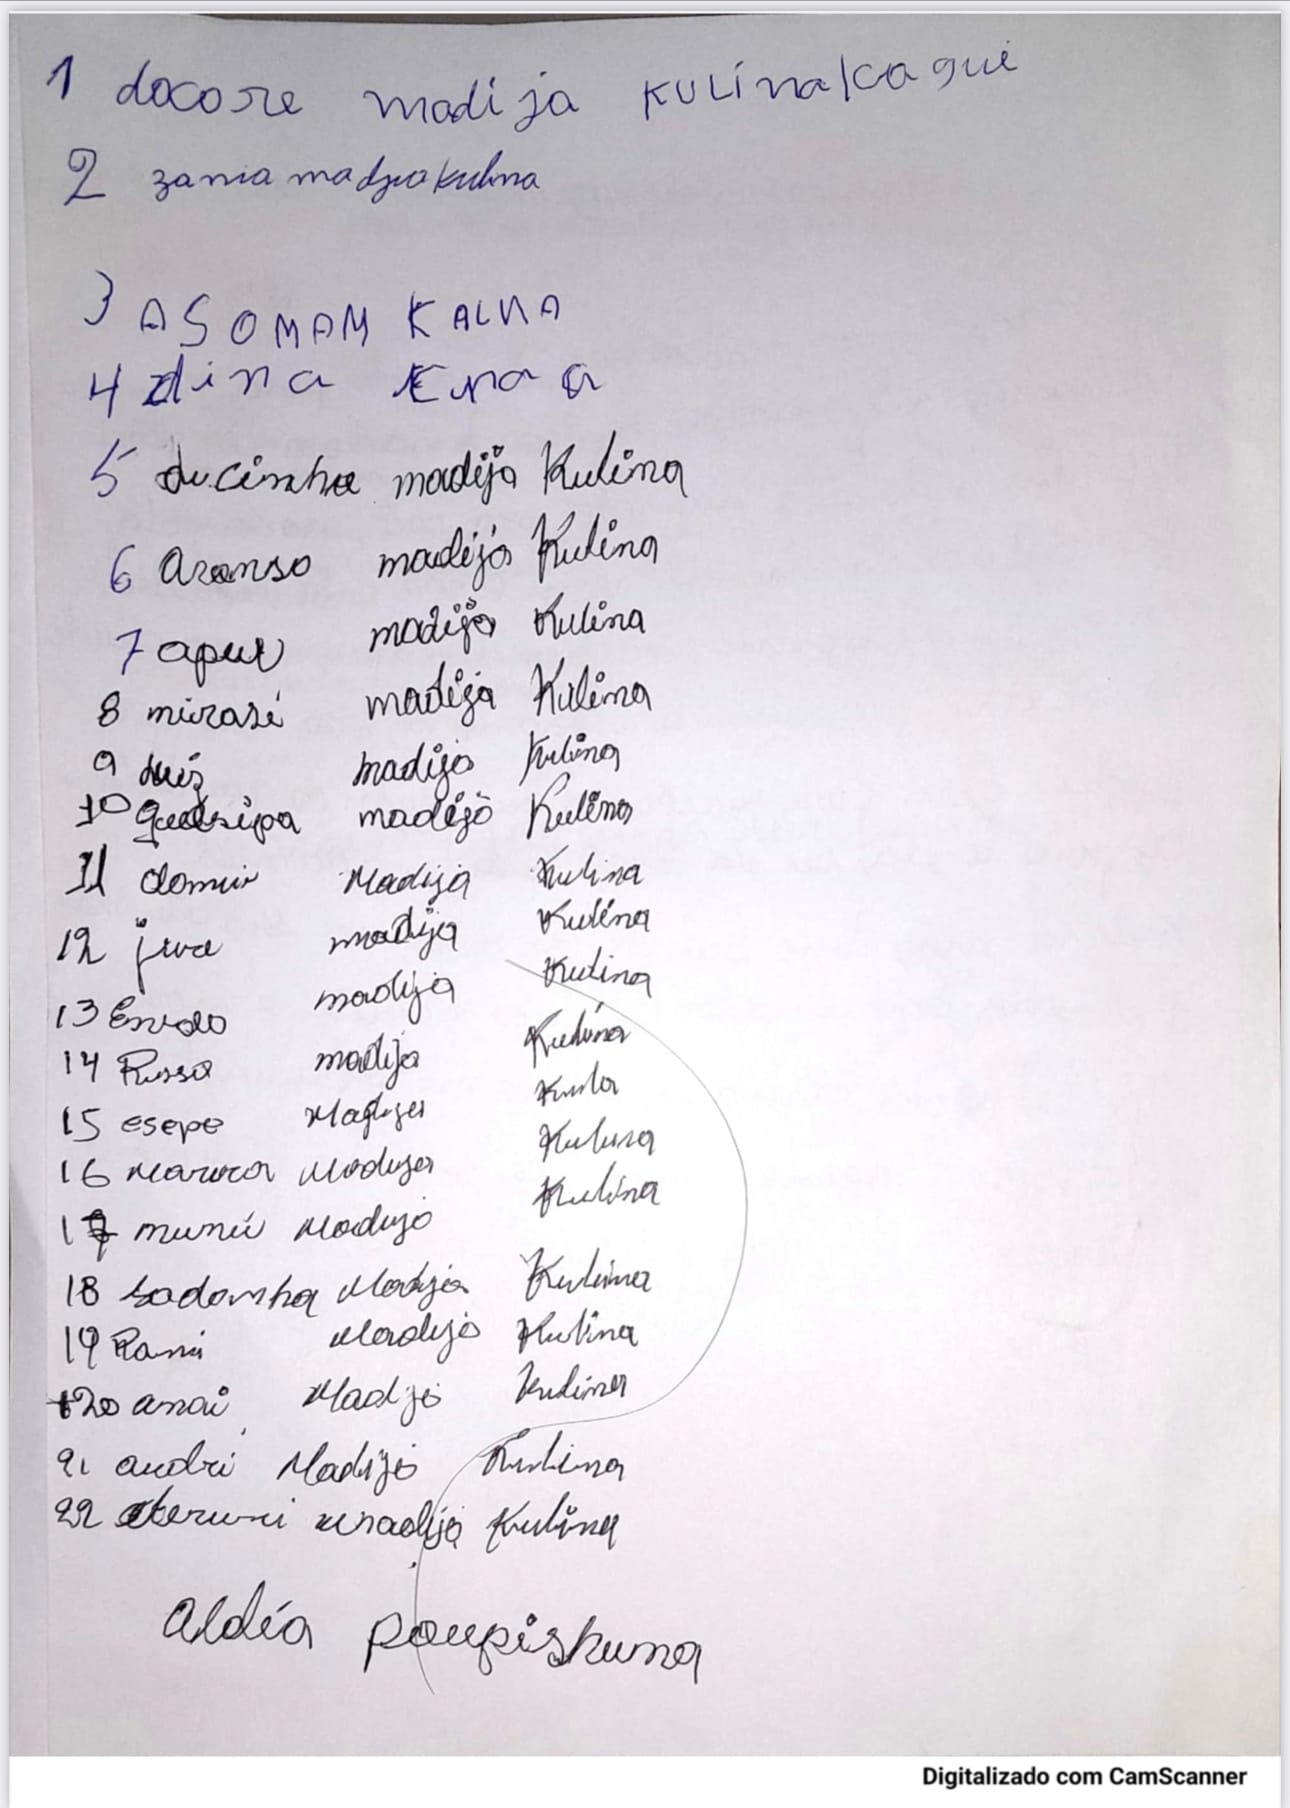 1 docore madija KULINA/cagui
2 zania madija kulina
3 ASOMAM KALNA
4 dina
5 ducinha madija Kulina
6 Aranso madija Kulina
7 apui madija Kulina
8 mirasi madija Kulina
9 luiz madija Kulina
10 madija Kulina
11 domiu Madija Kulina
12 madija Kulina
13 madija Kulina
14 Russo madija Kulina
15 esepe Madija Kula
16 Madija Kulina
17 Madija Kulina
18 sadomha Madija Kulina
19 Rami Madija Kulina
20 anai Madija Kulina
21 audri Madija Kulina
22 madija Kulina
Aldéa poupiskuna
Digitalizado com CamScanner